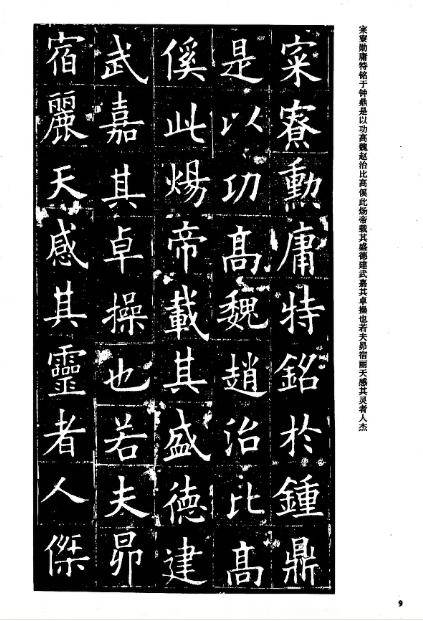 寀寮勋庸特铭于钟鼎是以功高魏赵治比高傒此炀帝载其盛德建武嘉其卓操也若夫昴宿丽天感其灵者人杰
寀寮動庸特銘於鍾鼎
是以功髙魏趙治比髙
傒此煬帝載其盛徳建
武嘉其卓操也若夫昴
宿麗天感其靈者人傑
9